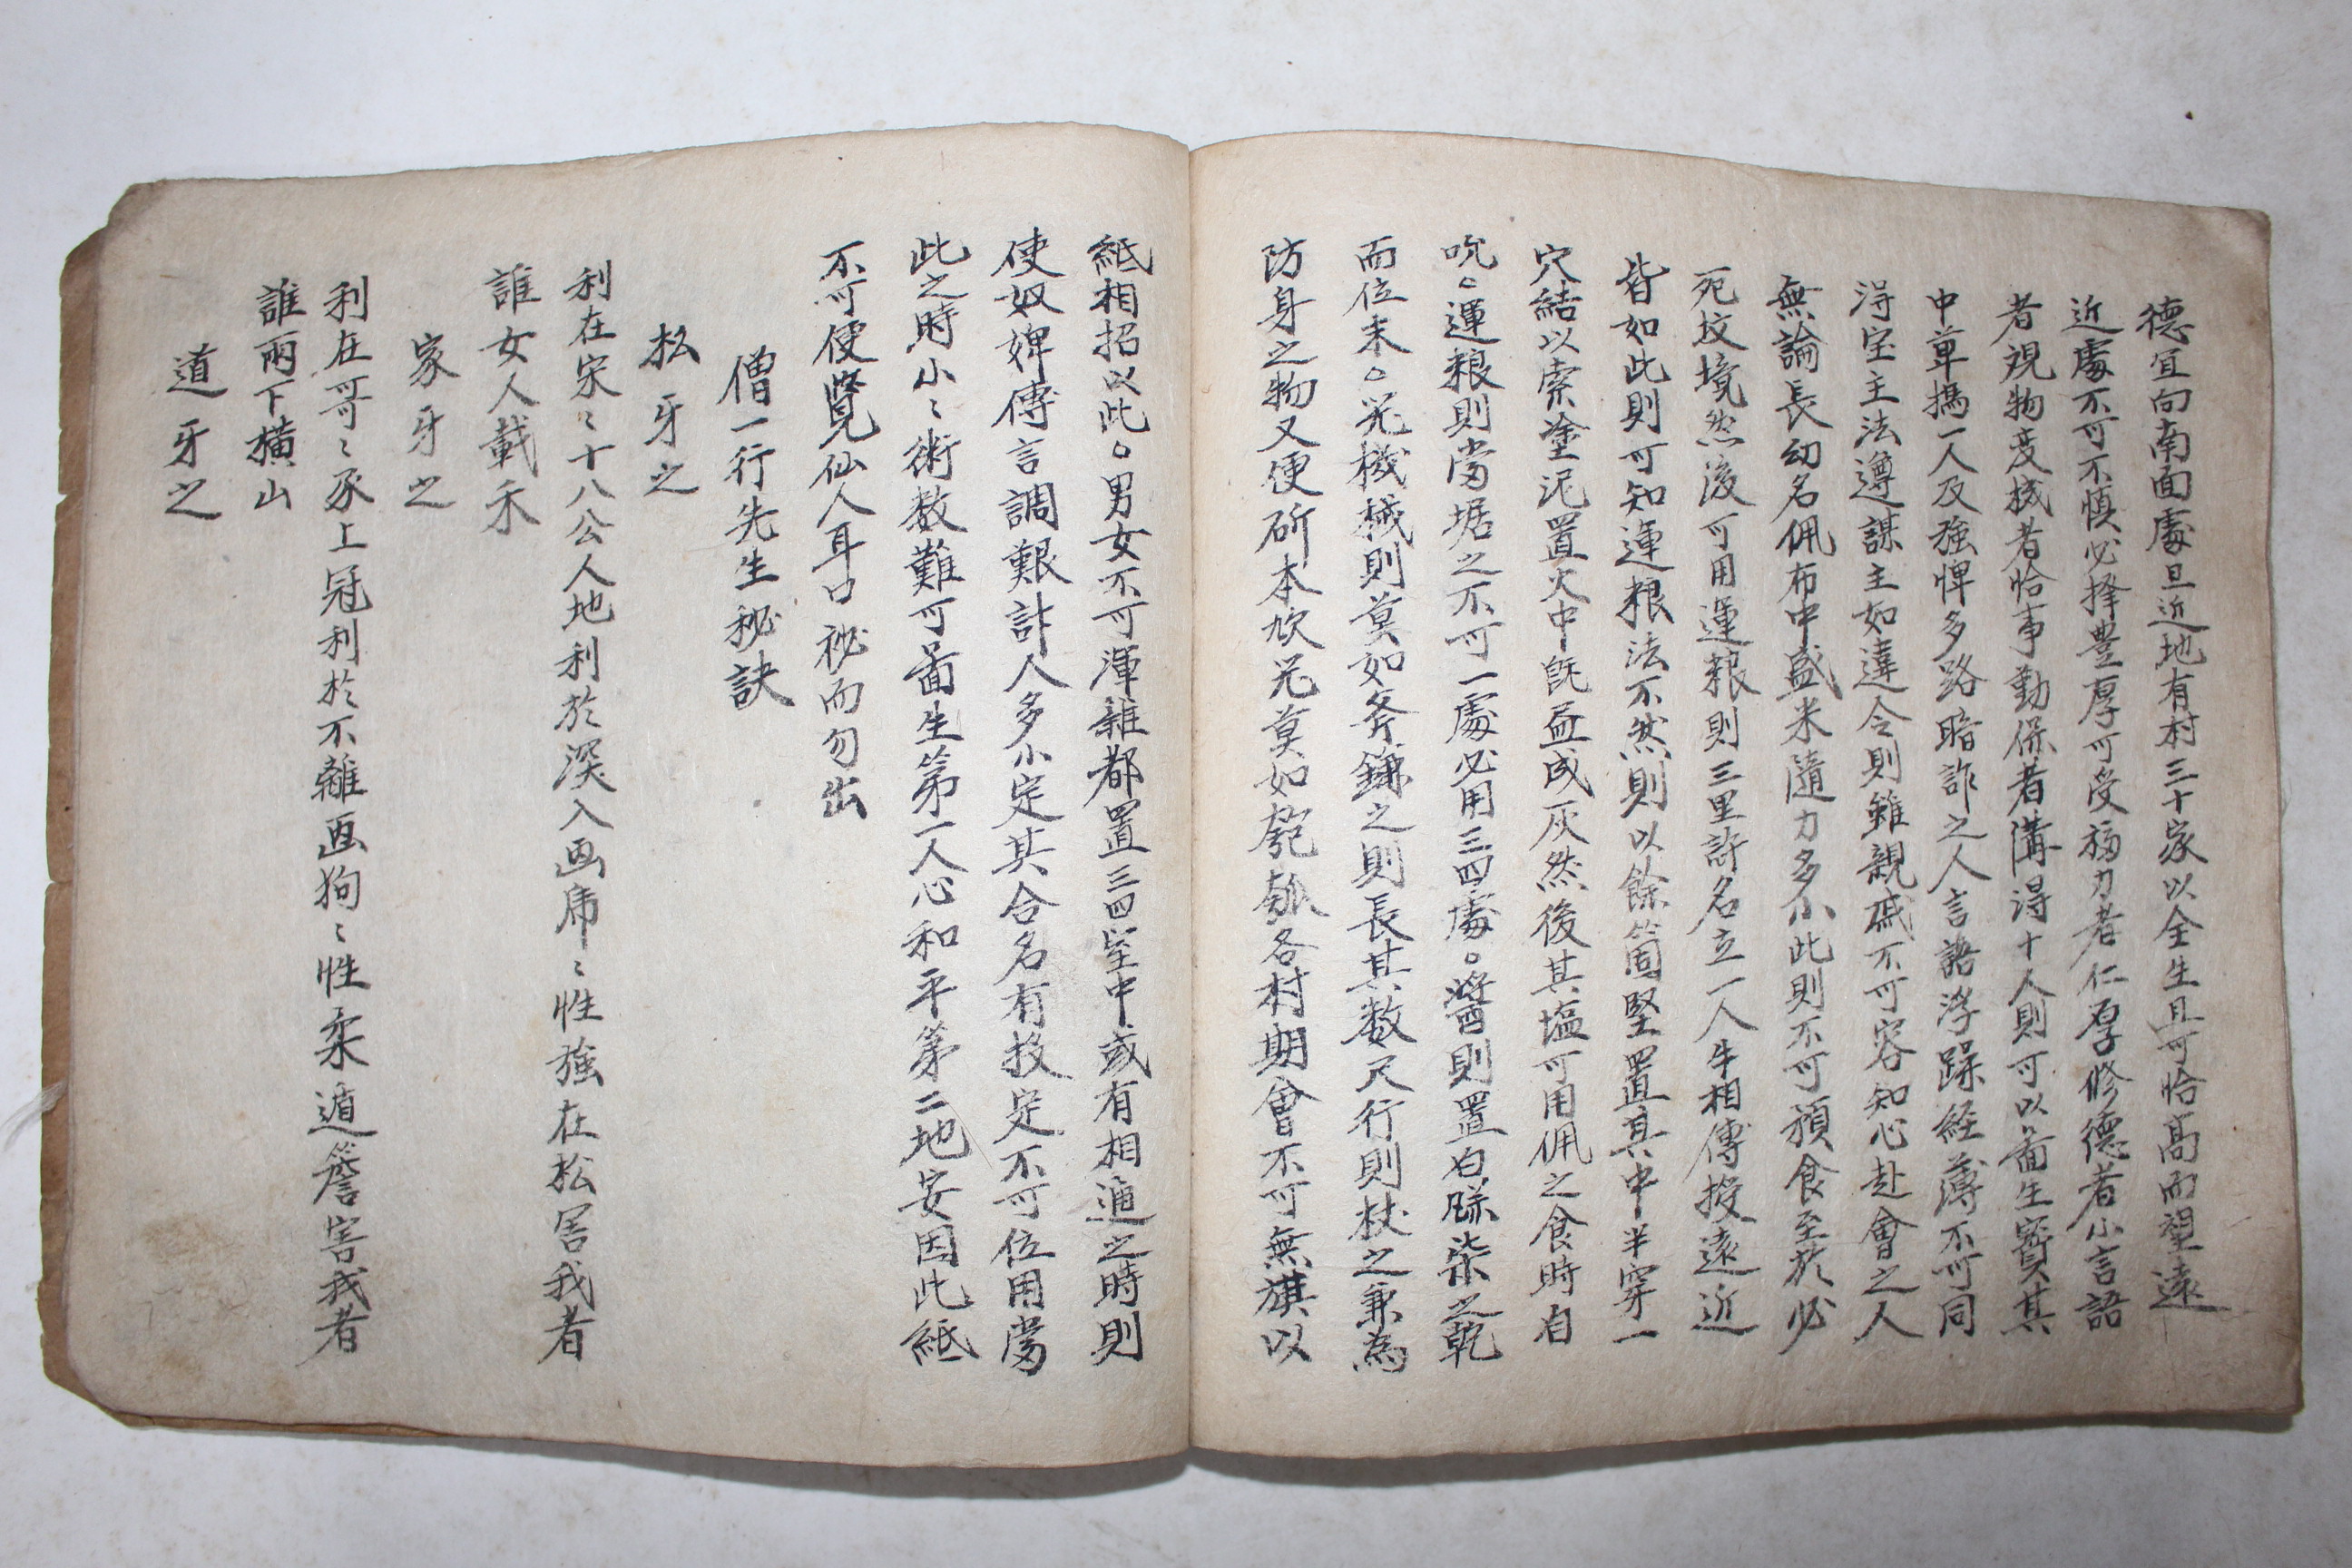 德宜向南面處且近地有村三十家以全生且可恰高而望遠
近處不可不慎必擇豊厚可受福力者仁厚修德者小言語
者視物度機者恰事勤保者溝得十人則可以啚生實其
中草搗一人及強悍多路暗詐之人言語浮躁経薄不可同
得宝主法遵謀主如違令則雖親戚不可容知心赴會之人
無論長幼名佩布中盛米隨力多小此則不可預食至於必
死坟境然後可用運粮則三里許名立一人牛相傳投遠近
皆如此則可知運粮法不然則以餘箇堅置其中半穿一
穴結以索塗泥置火中旣盃成灰然後其塩可用佩之食時自
吮。運粮則當堀之不可一處必用三四處。醬則置白縣柒之乾
而位末。兇機械則莫如斧鎌之則長其数尺行則杖之兼為
防身之物又便斫本炊兇莫如匏瓠各村期會不可無旗以
紙相招以此。男女不可渾雜都置三四室中或有相通之時則
使奴婢傳言調艱計人多小定其合名有投定不可位用當
此之時小〻術数難可啚生第一人心和平第二地安因此紙
不可使覽仙人耳口祕而勿出
僧一行先生秘訣
松牙之
利在宋〻十八公人地利於深入画席〻性強在松害我者
誰女人戴禾
家牙之
利在哥〻豕上冠利於不離画狗〻性柔遁簷害我者
誰兩下橫山
道牙之